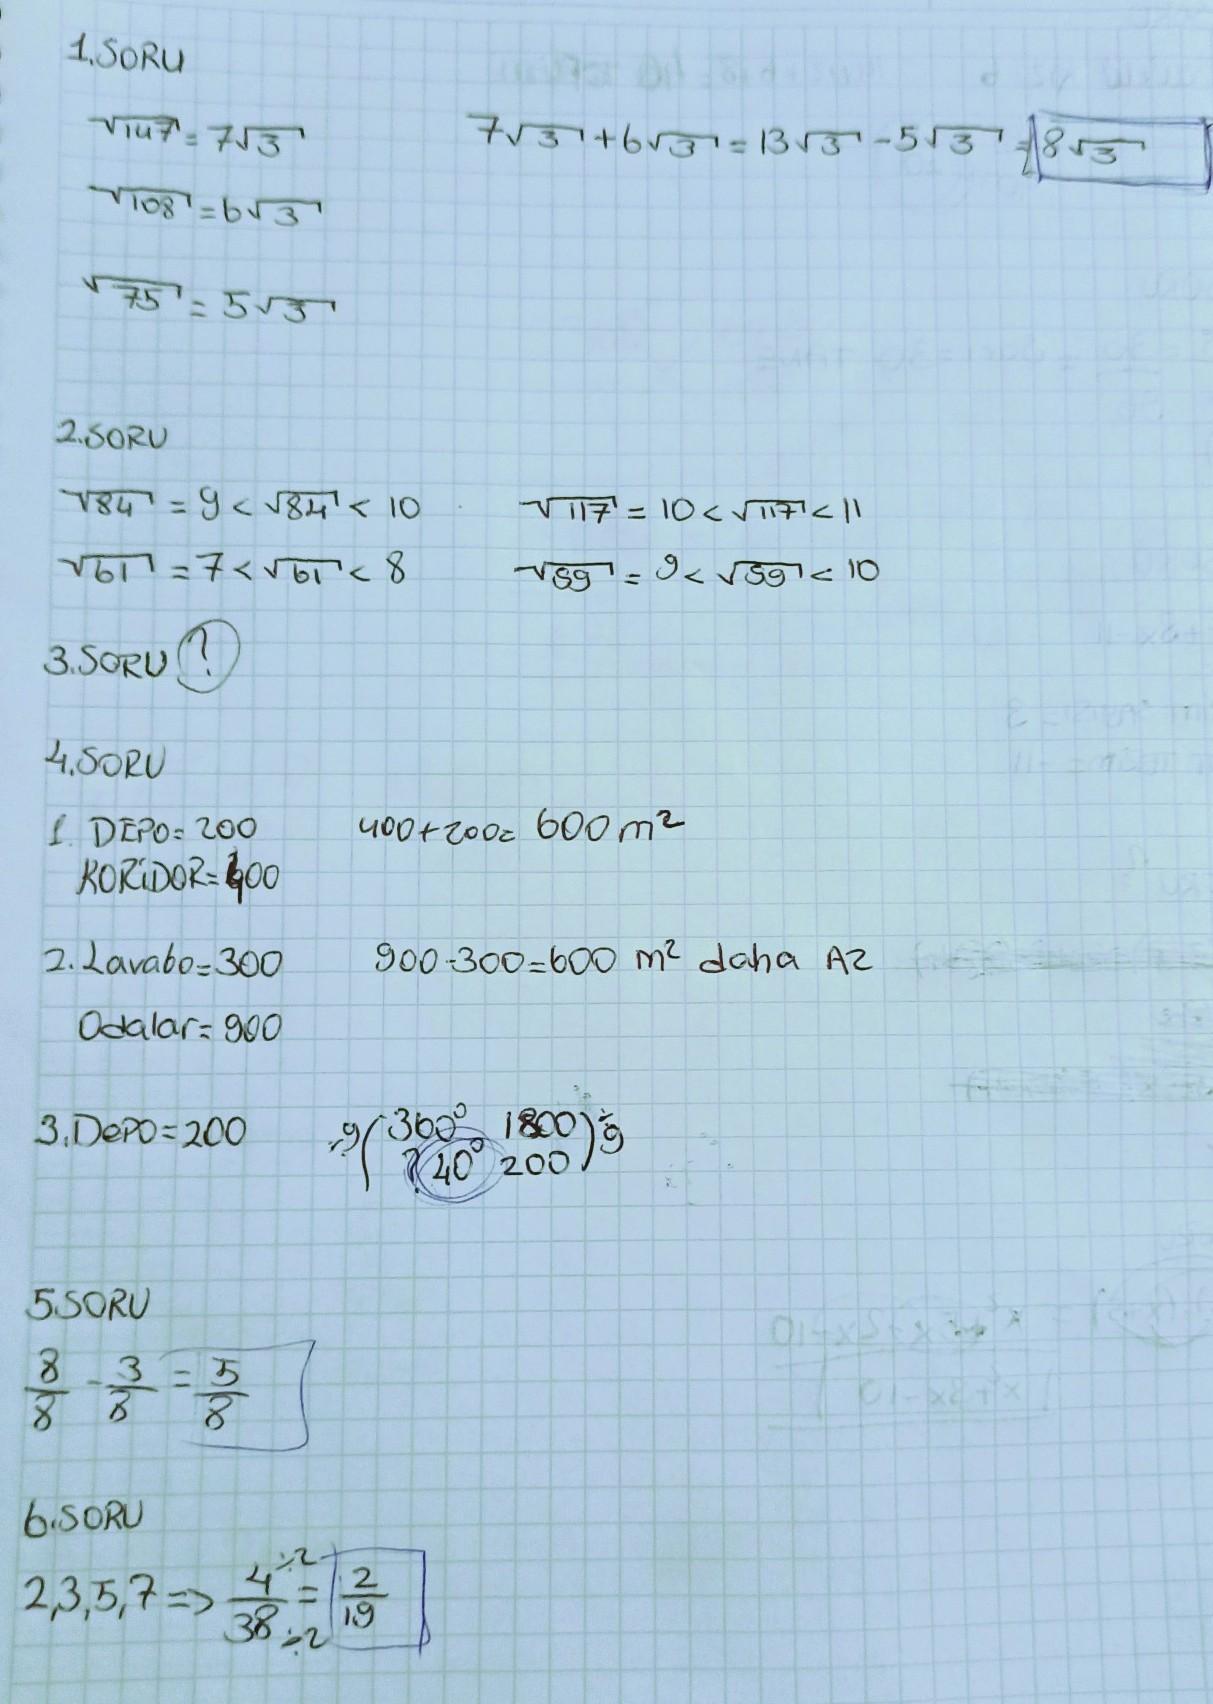 1.SORU
√147 = 7√3 7√3 + 6√3 = 13√3 - 5√3 = 8√3
√108 = 6√3
√75 = 5√3
2.SORU
√84 = 9 < √84 < 10 √117 = 10 < √117 < 11
√61 = 7 < √61 < 8 √59 = 9 < √59 < 10
3.SORU ?
4.SORU
1. DEPO = 200 400+200= 600 m²
KORİDOR = 400
2. Lavabo = 300 900-300=600 m² daha AZ
Odalar = 900
3. DEPO = 200 ÷9 ( 360° 1800 ) ÷9
? 40° 200
5.SORU
8/8 - 3/8 = 5/8
6.SORU
2,3,5,7 => 4/38 ÷2 ÷2 = 2/19